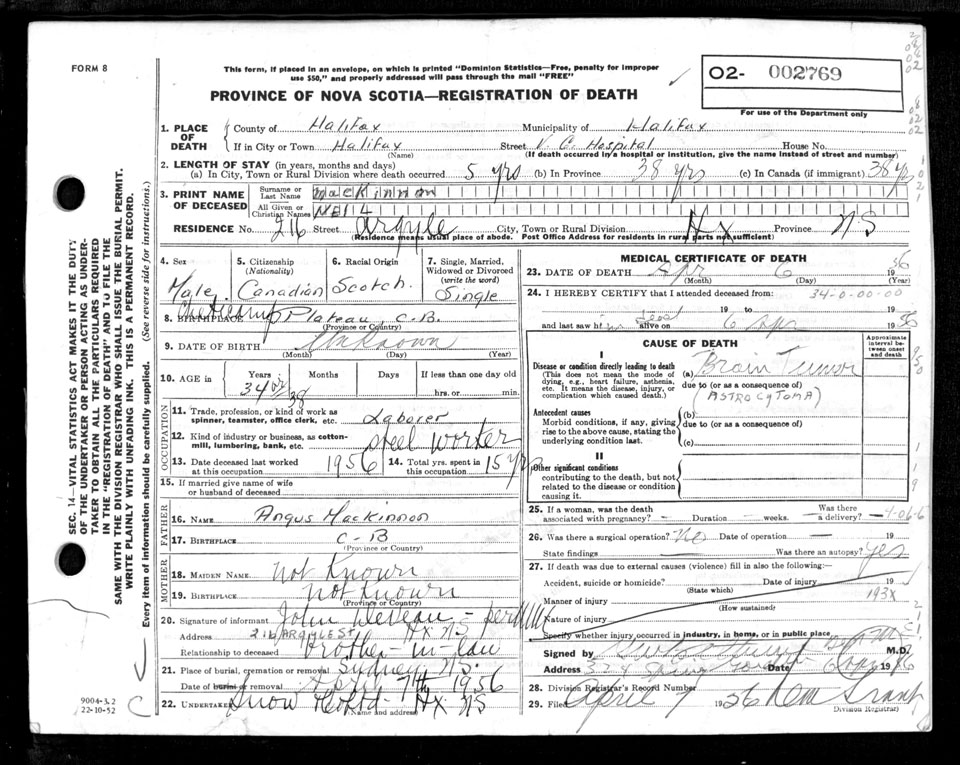 FORM 8
This form, if placed in an envelope, on which is printed "Dominion Statistics—Free, penalty for improper
use $50," and properly addressed will pass through the mail "FREE"
PROVINCE OF NOVA SCOTIA—REGISTRATION OF DEATH
02- 002769
For use of the Department only
1. PLACE OF DEATH
County of Halifax Municipality of Halifax
If in City or Town Halifax Street V. G. Hospital House No.
(Name) (If death occurred in a hospital or institution, give the name instead of street and number)
2. LENGTH OF STAY (in years, months and days)
(a) In City, Town or Rural Division where death occurred 5 yrs (b) In Province 38 yrs (c) In Canada (if immigrant) 38 yrs
3. PRINT NAME OF DECEASED
Surname or Last Name MacKinnon
All Given or Christian Names NEil
RESIDENCE No. 216 Street Argyle City, Town or Rural Division Hx Province NS
(Residence means usual place of abode. Post Office Address for residents in rural parts not sufficient)
4. Sex
Male
5. Citizenship
(Nationality)
Canadian
6. Racial Origin
Scotch
7. Single, Married,
Widowed or Divorced
(write the word)
Single
8. BIRTHPLACE Plateau, C.B.
(Province or Country)
9. DATE OF BIRTH Unknown
(Month) (Day) (Year)
10. AGE in
Years Months Days If less than one day old
34 or 38 hrs. or min.
OCCUPATION
11. Trade, profession, or kind of work as
spinner, teamster, office clerk, etc. Laborer
12. Kind of industry or business, as cotton-
mill, lumbering, bank, etc. Steel worker
13. Date deceased last worked
at this occupation 1956
14. Total yrs. spent in
this occupation 15 yrs
15. If married give name of wife
or husband of deceased
FATHER
16. NAME Angus MacKinnon
17. BIRTHPLACE C-B
(Province or Country)
MOTHER
18. MAIDEN NAME not Known
19. BIRTHPLACE not known
(Province or Country)
20. Signature of informant John Deveau - per
Address 216 ARGYLE ST HX NS
Relationship to deceased brother-in-law
21. Place of burial, cremation or removal Sydney N.S.
Date of burial or removal April 7th 1956
22. UNDERTAKER Snow Hx NS
(Name and address)
MEDICAL CERTIFICATE OF DEATH
23. DATE OF DEATH Apr 6 1956
(Month) (Day) (Year)
24. I HEREBY CERTIFY that I attended deceased from: 34-0-00-00
19 to 19
and last saw him alive on 6 Apr 1956
dead
CAUSE OF DEATH
Approximate interval between onset and death
I
Disease or condition directly leading to death
(This does not mean the mode of
dying, e.g., heart failure, asthenia,
etc. It means the disease, injury, or
complication which caused death.)
(a) Brain Tumor
due to (or as a consequence of)
(ASTROCYTOMA)
Antecedent causes
Morbid conditions, if any, giving
rise to the above cause, stating the
underlying condition last.
(b)
due to (or as a consequence of)
(c)
II
Other significant conditions
contributing to the death, but not
related to the disease or condition
causing it.
25. If a woman, was the death
associated with pregnancy? – Duration — weeks. Was there a delivery? –
26. Was there a surgical operation? No Date of operation —
State findings — Was there an autopsy? Yes
27. If death was due to external causes (violence) fill in also the following:—
Accident, suicide or homicide? Date of injury 19
(State which)
193X
Manner of injury
(How sustained)
Nature of injury
Specify whether injury occurred in industry, in home, or in public place
Signed by M.D.
Address 19
28. Division Registrar's Record Number
29. Filed April 7 1956
Division Registrar
SEC. 14—VITAL STATISTICS ACT MAKES IT THE DUTY
OF THE UNDERTAKER OR PERSON ACTING AS UNDER-
TAKER TO OBTAIN ALL THE PARTICULARS REQUIRED
IN THE "REGISTRATION OF DEATH" AND TO FILE THE
SAME WITH THE DIVISION REGISTRAR WHO SHALL ISSUE THE BURIAL PERMIT.
WRITE PLAINLY WITH UNFADING INK. THIS IS A PERMANENT RECORD.
Every item of information should be carefully supplied. (See reverse side for instructions.)
9004-3.2
22-10-52
C